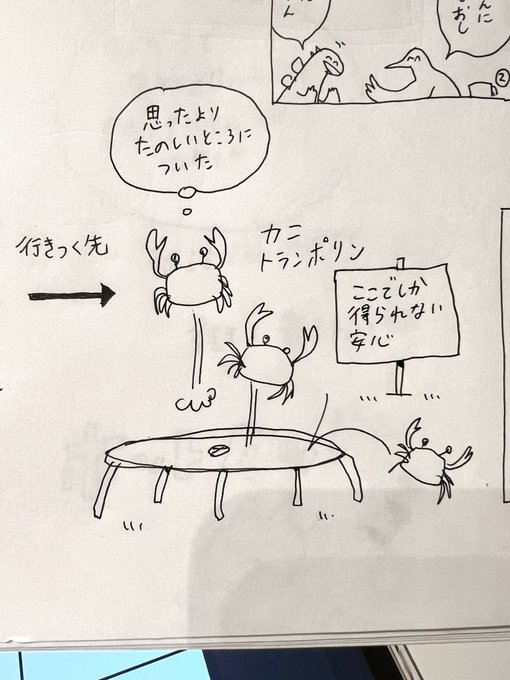 んに
おし
ん
②
思ったより
たのしいところに
ついた
行きつく先
カニ
トランポリン
ここでしか
得られない
安心